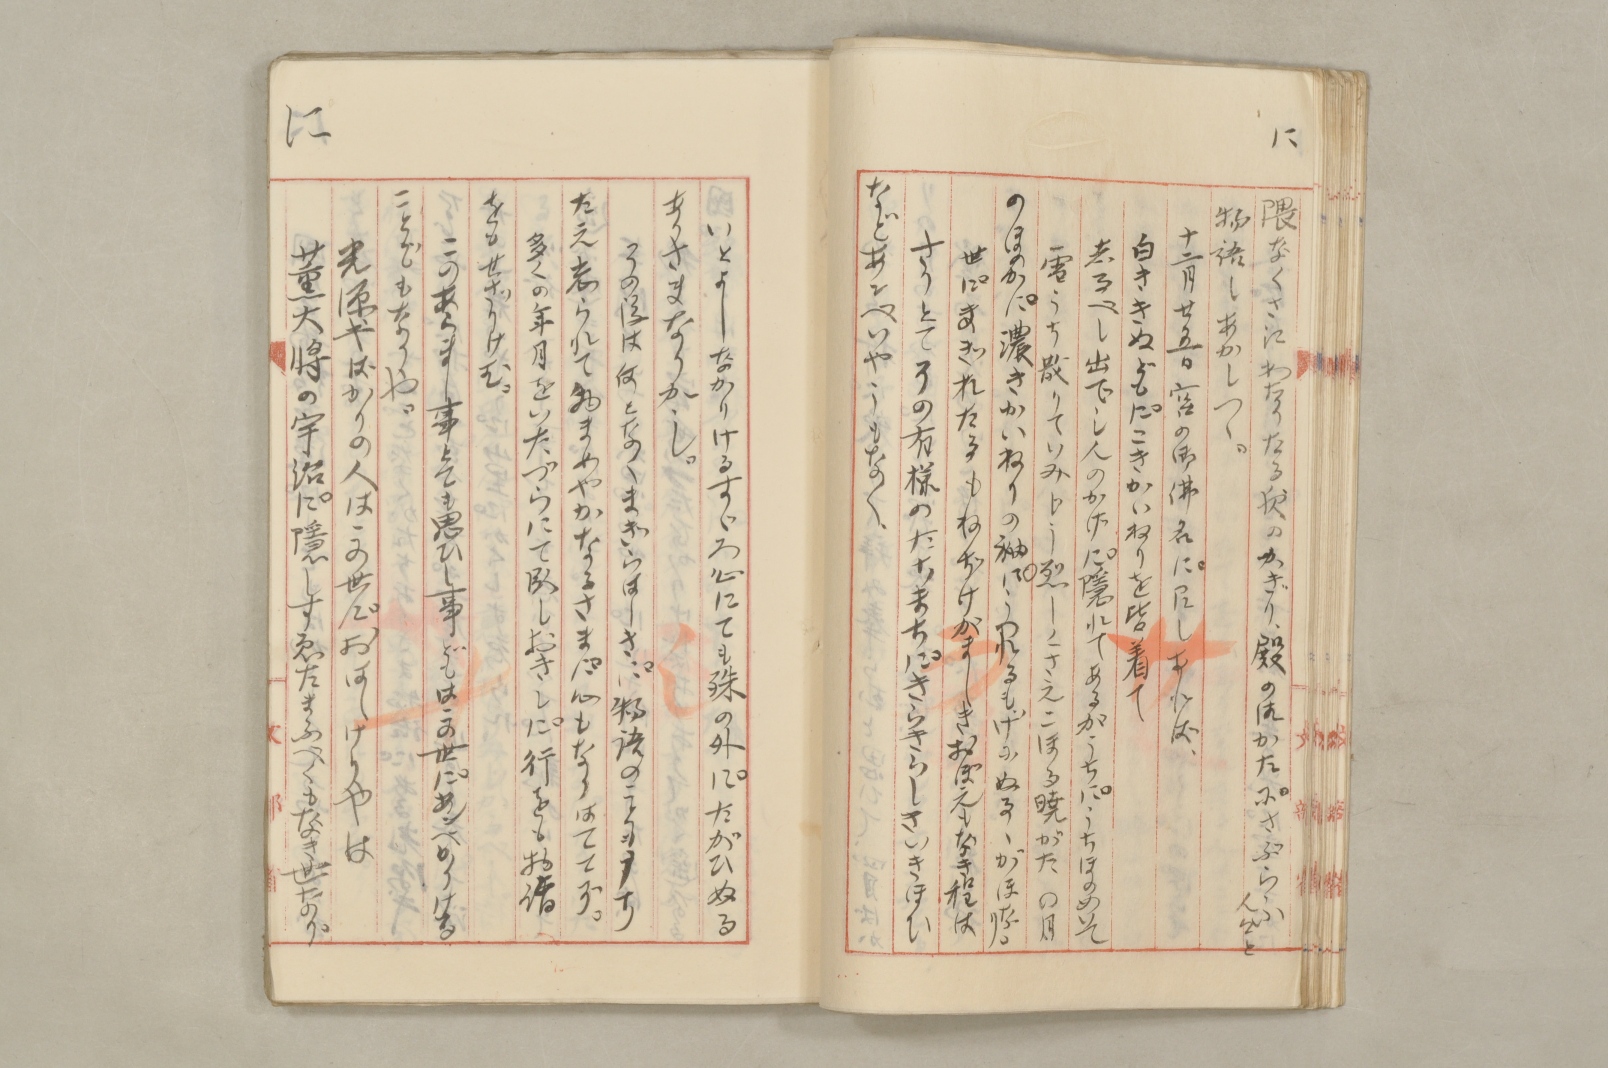 に
隈なくさへわたりたる夜のかぎり、殿の御かたにさぶらふ人々と
物語しあかしつゝ。
十二月廿五日宮の御佛名に。召しあれば、
白ききぬどもに。こきかいねりを皆着て
出でゐし人のかげに。隱れてあるがうちに。うちほのめいて
雪うち散りていみじう烈しくさえこほる曉がたの月
のほのかに。濃きかいねりの袖に。うつれるもげにぬるゝがほなり。
さりとてその有様のたちまちに。きらきらしきいきほひ
などあンべいやうもなく、
に
いとよしなかりけるすゞろ心にても殊の外に。たがひぬる
ありさまなりかし。
その後は何となくまぎらはしきに。物語のこともうち
たえ忘られて物まめやかなるさまに。心もなりはててぞ。
多くの年月をいたづらにて臥しおきしに。行をも物詣
をもせざりけむ。
このあらまし事とても思ひし事どもはこの世に。あンべかりける
ことどもなりや。
光源氏ばかりの人はこの世に。おはしけりやは
薰大將の宇治に。隱しすゑたまふべくもなき世なり。
文部省